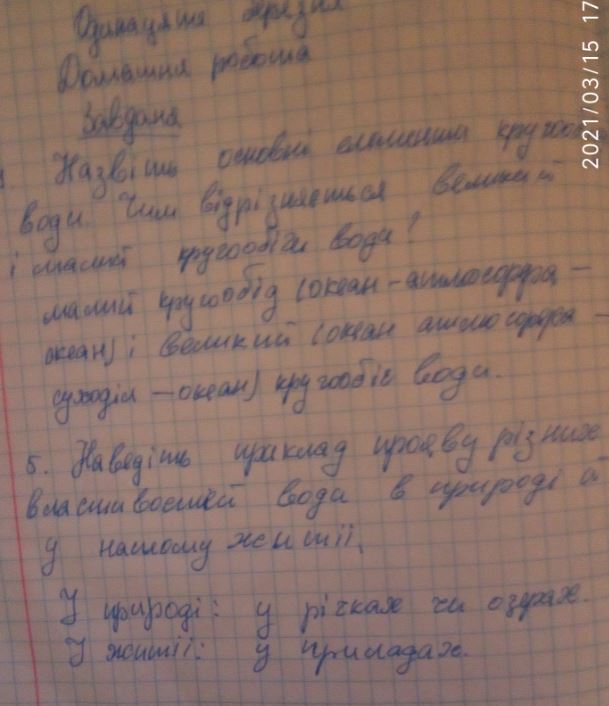 Одинацяте березня
Домашня робота
Завданя
Назвіть основні елементи кругооб
води. Чим відрізняється великий
і малий кругообіги води?
малий кругообід (океан-атмосфра -
океан) і великий (океан атмосфра -
суходіл - океан) кругообіг води.
5. Наведіть приклад прояву різних
властивостей води в природі й
у нашому житті.
У природі: у річках чи озерах.
У житті: у приладах.
2021/03/15 17